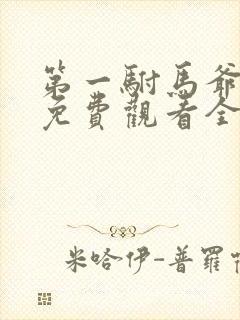 第一駙馬爺
免費觀看全
米哈伊-普羅